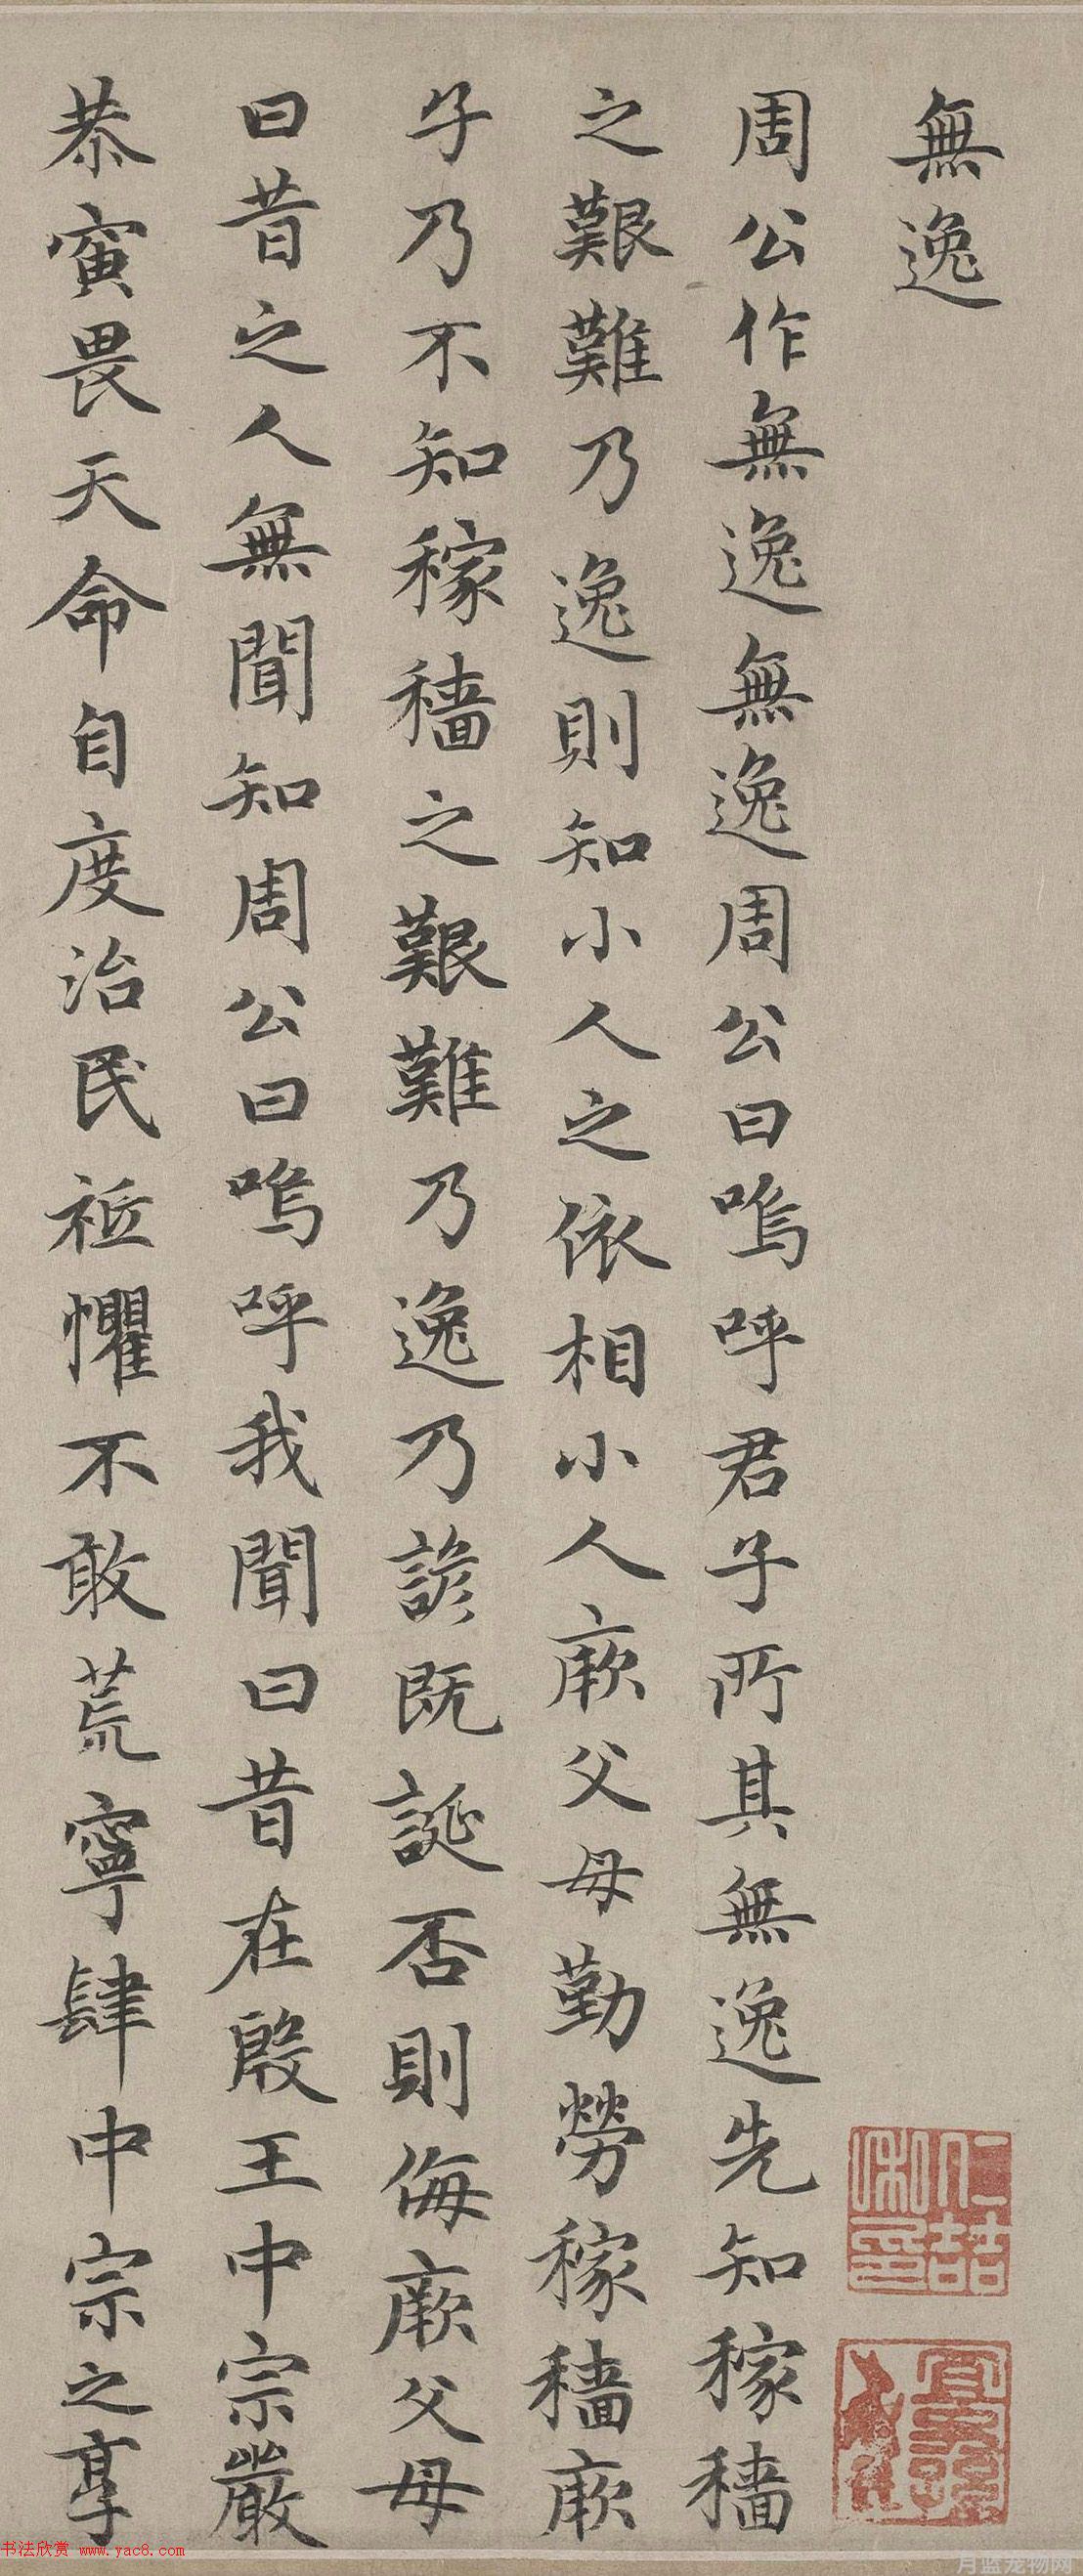 無逸
周公作無逸無逸周公曰嗚呼君子所其無逸先知稼穡
之艱難乃逸則知小人之依相小人厥父母勤勞稼穡厥
子乃不知稼穡之艱難乃逸乃諺既誕否則侮厥父母
曰昔之人無聞知周公曰嗚呼我聞曰昔在殷王中宗嚴
恭寅畏天命自度治民祗懼不敢荒寧肆中宗之享
書法欣賞 www.yac8.com
月蓝宠物网